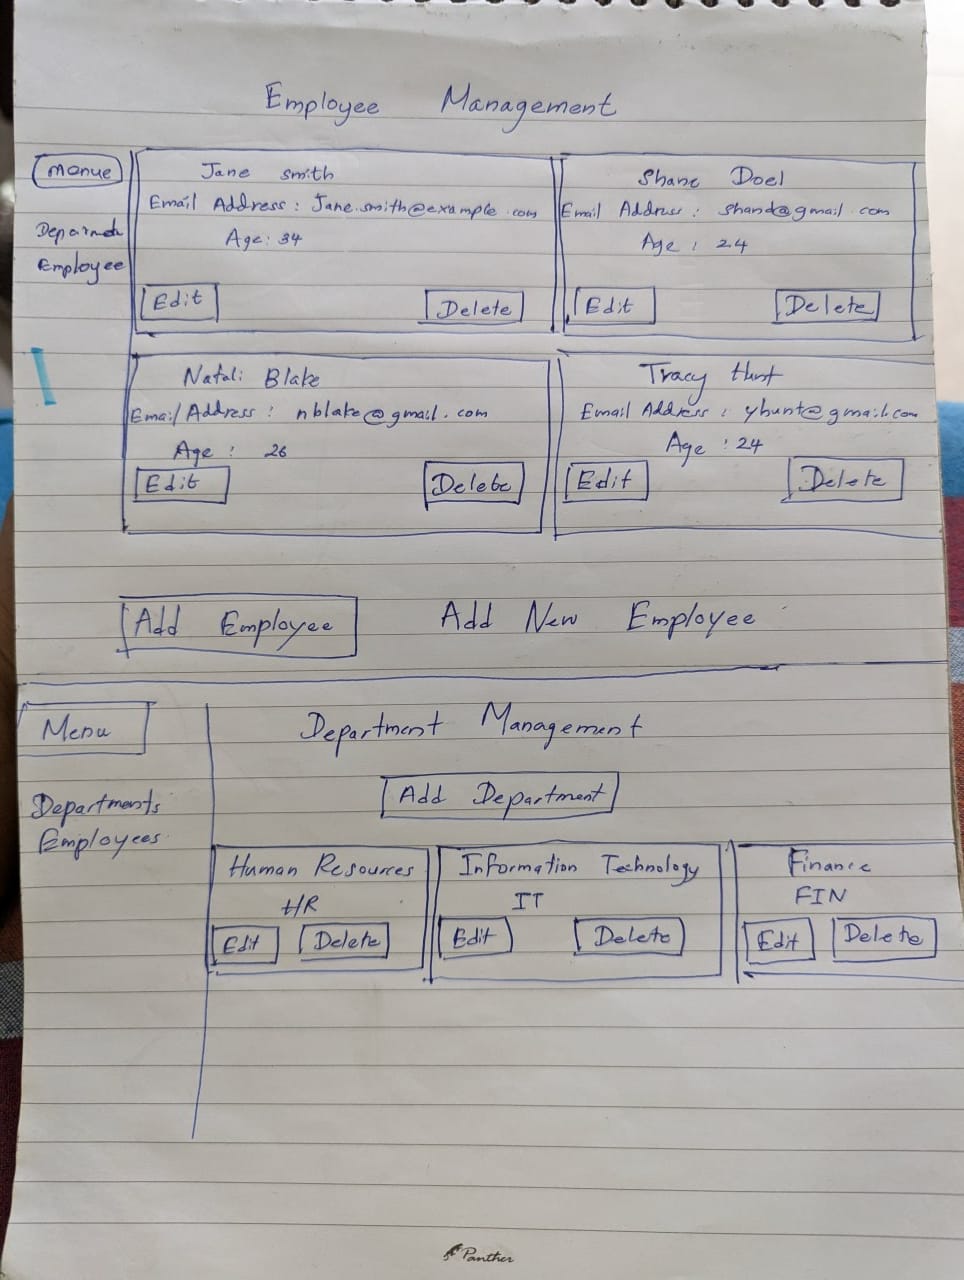 Employee Management
Manue
Jane smith
Email Address : Jane.smith@example.com
Age: 34
Edit Delete
Shane Doel
Email Address : shand@gmail.com
Age : 24
Edit Delete
Employee
Natali Blake
Email Address : nblake@gmail.com
Age : 26
Edit Delete
Tracy Hunt
Email Address : yhunt@gmail.com
Age : 24
Edit Delete
Add Employee Add New Employee
Menu
Departments
Employees
Department Management
Add Department
Human Resources
HR
Edit Delete
Information Technology
IT
Edit Delete
Finance
FIN
Edit Delete
Panther